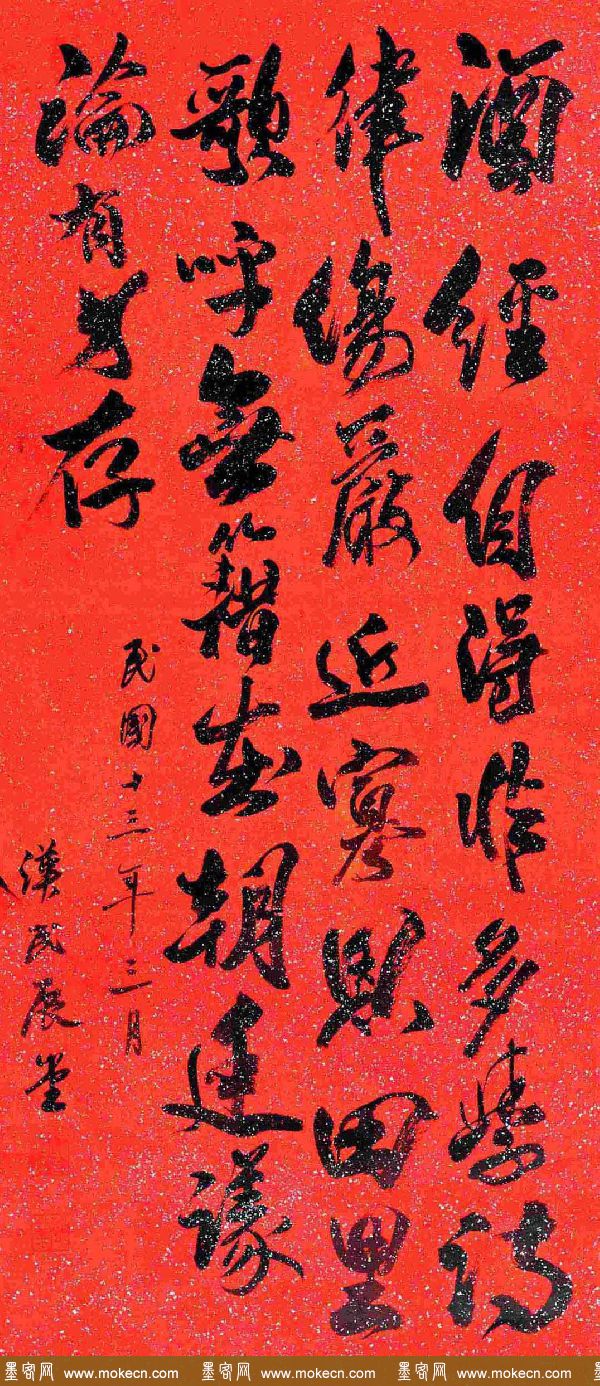 酒經自得非多學詩
律傷嚴近寡恩田里
歌呼無籍在朝廷議
論有司存
民國十三年三月
漢民展堂
墨客网 www.mokecn.com 墨客网 www.mokecn.com 墨客网 www.mokecn.com